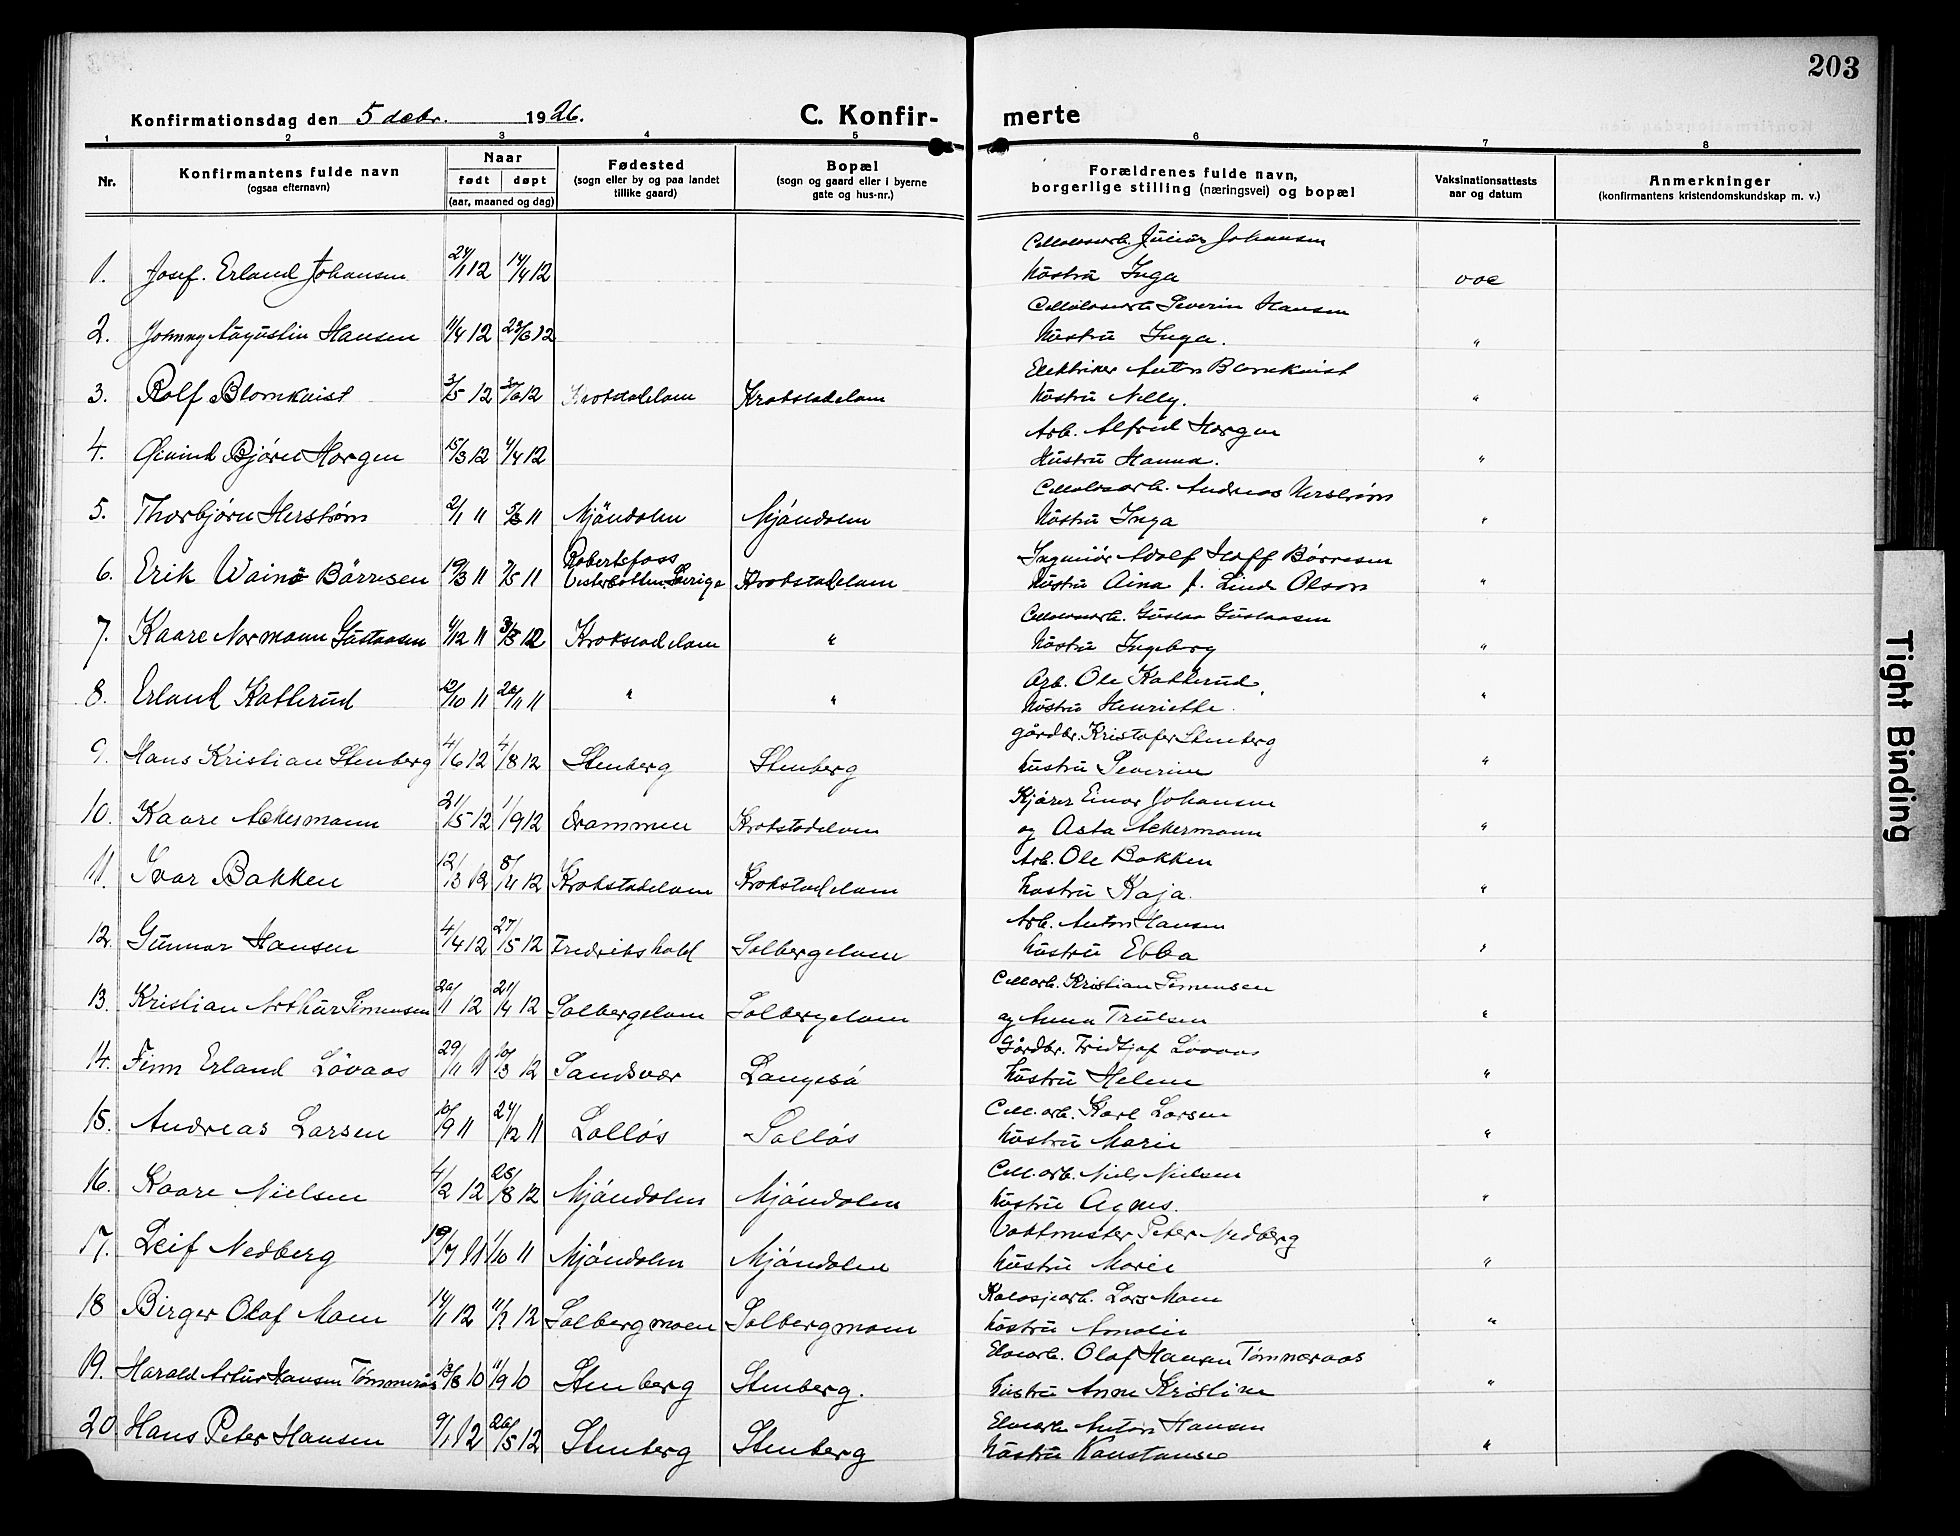 203
Konfirmationsdag den 5 decbr. 1926.
C. Konfir-
merte
1 2 3 4 5 6 7 8
Nr.
Konfirmantens fulde navn
(ogsaa efternavn)
Naar
født døpt
(aar, maaned og dag)
Fødested
(sogn eller by og paa landet
tillike gaard)
Bopæl
(sogn og gaard eller i byerne
gate og hus-nr.)
Forældrenes fulde navn,
borgerlige stilling (næringsvei) og bopæl
Vaksinationsattests
aar og datum
Anmerkninger
(konfirmantens kristendomskundskap m. v.)
Cellulosearb. Julius Johansen
1. Josef. Erland Johansen 24/1 12 14/4 12 hustru Inga vac
Cellulosearb. Severin Hansen
2. Johnny Augustin Hansen 11/4 12 23/6 12 hustru Inga. "
Elektriker Anton Blomkvist
3. Rolf Blomkvist 3/5 12 30/6 12 Krokstadelven Krokstadelven hustru Nelly. "
Arb. Alfred Horgen
4. Øivind Bjørn Horgen 15/3 12 4/4 12 Hustru Hanna. "
Cellulosearb. Andreas Herstrøm
5. Thorbjørn Herstrøm 2/1 11 5/3 11 Mjøndalen Mjøndalen hustru Inga "
Robertsfoss Ingeniør Adolf Hoff Börresen
6. Erik Wainö Börresen 19/3 11 7/5 11 Vesterbotten Sverige Krokstadelven hustru Aina f. Linda Olson "
Cellulosearb. Gustav Gustavsen
7. Kaare Normann Gustavsen 4/12 11 3/3 12 Krokstadelven " hustru Ingeborg "
Arb. Ole Katterud
8. Erland Katterud 12/10 11 26/11 11 " " hustru Henriette. "
gårdbr. Kristofer Stenberg
9. Hans Kristian Stenberg 4/6 12 4/8 12 Stenberg Stenberg hustru Severine "
Kjører Einar Johansen
10. Kaare Ackermann 21/5 12 1/9 12 Drammen Krokstadelven og Asta Ackermann "
Arb. Ole Bakken
11. Ivar Bakken 12/3 12 8/4 12 Krokstadelven Krokstadelven hustru Kaja. "
Arb. Anton Hansen
12. Gunnar Hansen 4/4 12 27/5 12 Fredrikshald Solbergelven hustru Ebba "
Cell.arb. Kristian Simensen
13. Kristian Arthur Simensen 20/1 12 21/4 12 Solbergelven Solbergelven og Anna Trulsen "
Gårdbr. Fridtjof Løvaas
14. Finn Erland Lövaas 29/11 11 10/3 12 Sandsvær Langesö hustru Helene "
Cell.arb. Karl Larsen
15. Andreas Larsen 10/9 11 24/12 11 Solløs Solløs hustru Marie "
Cell.arb. Niels Nielsen
16. Kaare Nielsen 4/2 12 25/8 12 Mjøndalen Mjøndalen hustru Agnes. "
Vaktmester Peter Nedberg
17. Leif Nedberg 19/7 11 1/10 11 Mjøndalen Mjøndalen hustru Marie "
Kalosjearb. Lars Moen
18 Birger Olaf Moen 14/1 12 11/2 12 Solbergmoen Solbergmoen hustru Amalie "
Elvearb. Olaf Hansen Tømmeraas
19. Harald Artur Hansen Tømmerås 13/8 10 11/9 10 Stenberg Stenberg. hustru Anne Kristine "
Elvearb. Anton Hansen
20 Hans Peter Hansen 9/1 12 26/5 12 Stenberg Stenberg hustru Konstanse "
Tight Binding